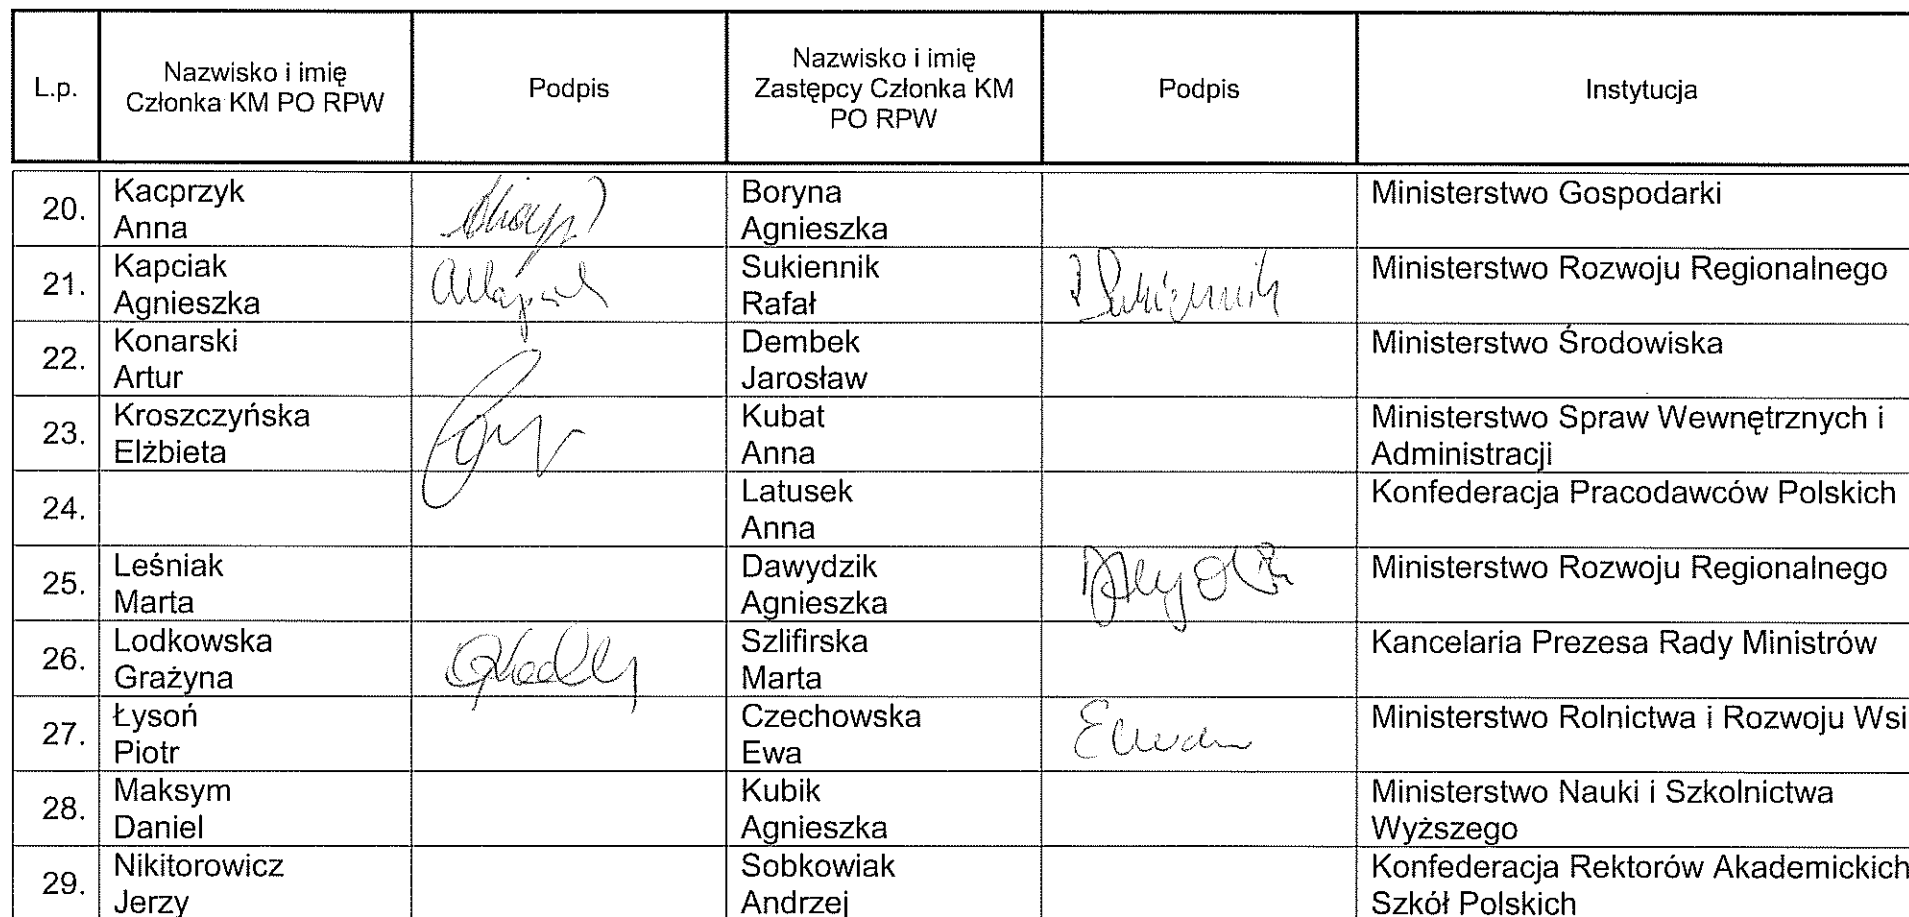 L.p.
Nazwisko i imię
Członka KM PO RPW
Podpis
Nazwisko i imię
Zastępcy Członka KM
PO RPW
Podpis
Instytucja
20.
Kacprzyk
Anna
Boryna
Agnieszka
Ministerstwo Gospodarki
21.
Kapciak
Agnieszka
Sukiennik
Rafał
R Sukiennik
Ministerstwo Rozwoju Regionalnego
22.
Konarski
Artur
Dembek
Jarosław
Ministerstwo Środowiska
23.
Kroszczyńska
Elżbieta
Kubat
Anna
Ministerstwo Spraw Wewnętrznych i
Administracji
24.
Latusek
Anna
Konfederacja Pracodawców Polskich
25.
Leśniak
Marta
Dawydzik
Agnieszka
Ministerstwo Rozwoju Regionalnego
26.
Lodkowska
Grażyna
Szlifirska
Marta
Kancelaria Prezesa Rady Ministrów
27.
Łysoń
Piotr
Czechowska
Ewa
Ministerstwo Rolnictwa i Rozwoju Wsi
28.
Maksym
Daniel
Kubik
Agnieszka
Ministerstwo Nauki i Szkolnictwa
Wyższego
29.
Nikitorowicz
Jerzy
Sobkowiak
Andrzej
Konfederacja Rektorów Akademickich
Szkół Polskich